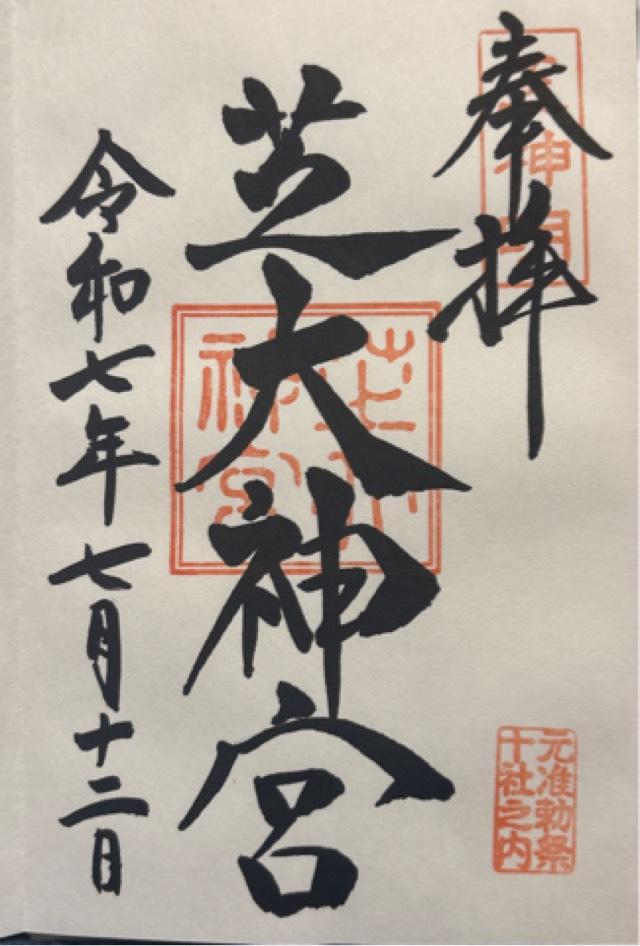 奉拝
芝大神宮
令和七年七月十二日
芝大
神宮
元准勅祭
十社之内